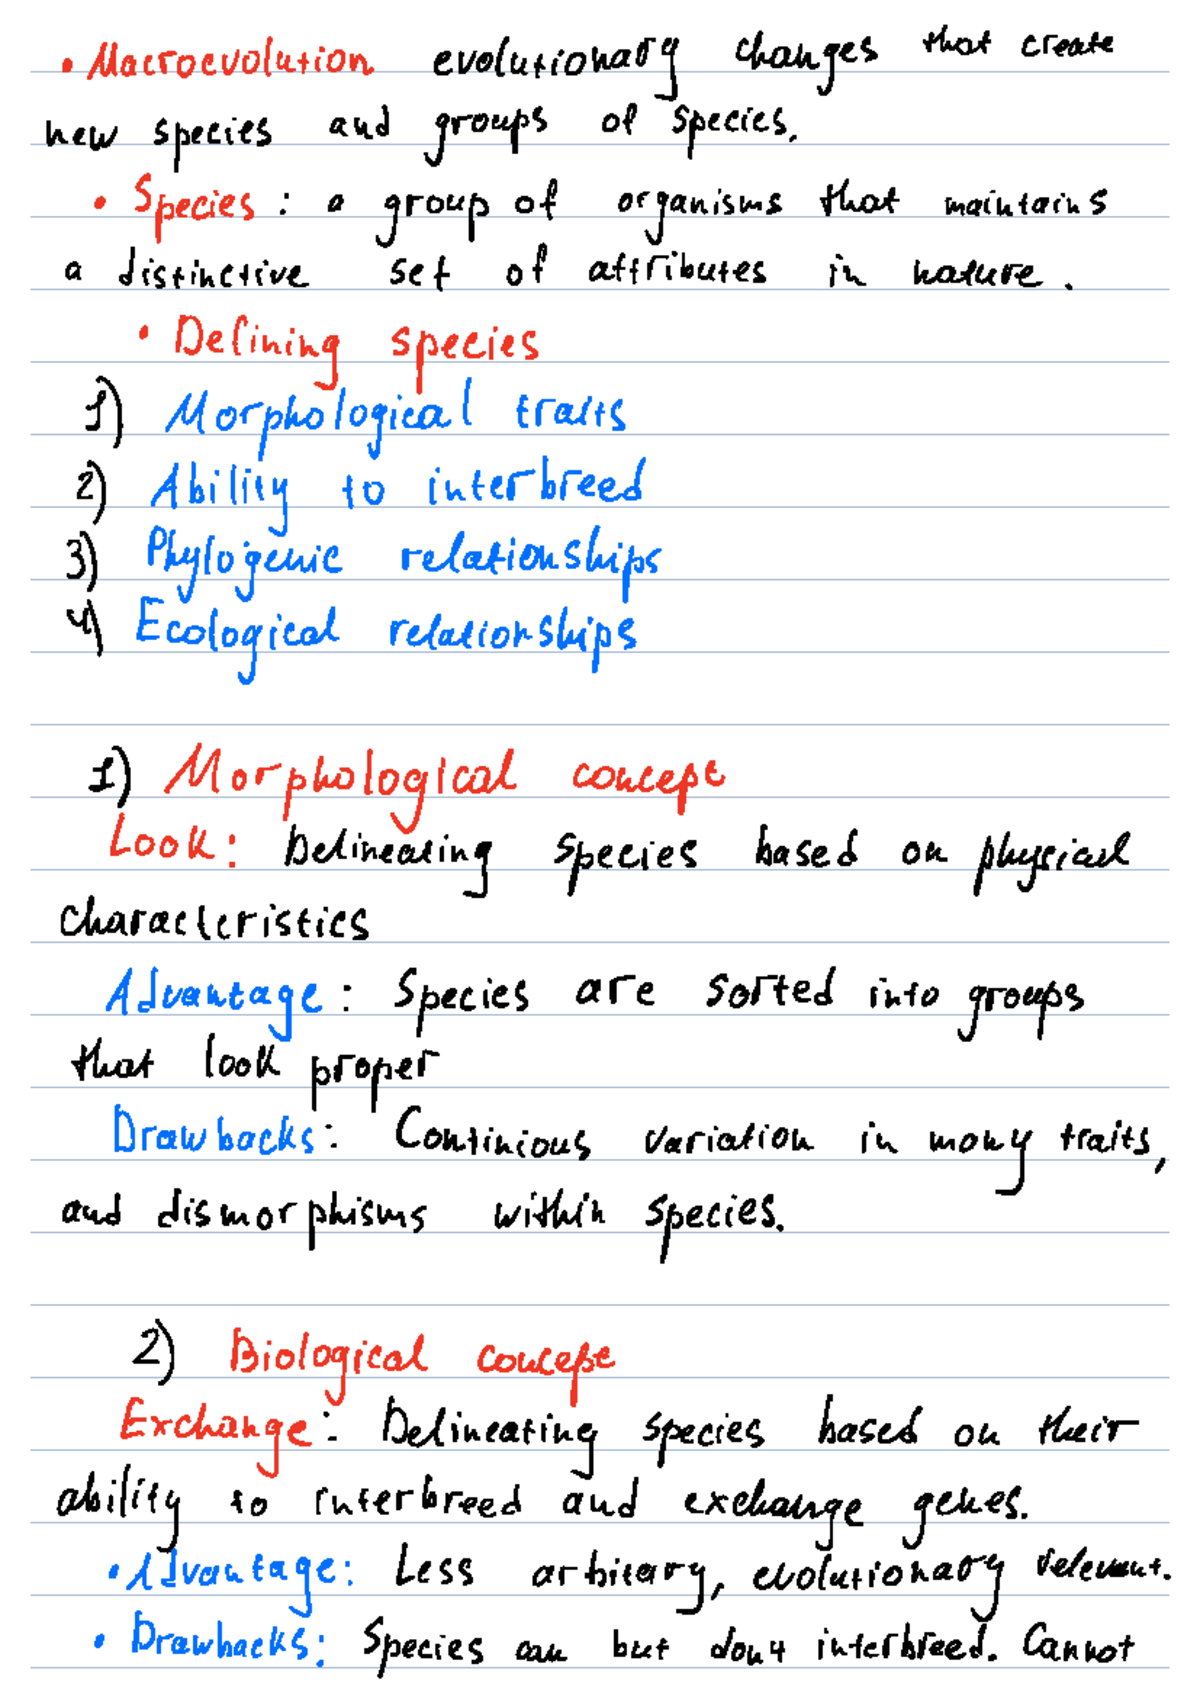 • Macroevolution evolutionary changes that create
new species and groups of species.
• Species : a group of organisms that maintains
a distinctive set of attributes in nature .
• Defining species
1) Morphological traits
2) Ability to interbreed
3) Phylogenic relationships
4) Ecological relationships
1) Morphological concept
Look: Delineating species based on physical
characteristics
Advantage : Species are sorted into groups
that look proper
Drawbacks: Continious variation in many traits,
and dismorphisms within species.
2) Biological concept
Exchange: Delineating species based on their
ability to interbreed and exchange genes.
• Advantage: Less arbitary, evolutionary relevant.
• Drawbacks: Species can but dont interbreed. Cannot